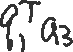 q₁ᵀ a₃